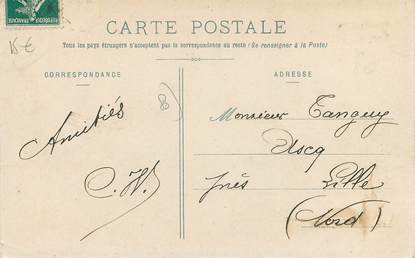 15 €
CARTE POSTALE
Tous les pays étrangers n'acceptent pas la correspondance au recto (Se renseigner à la Poste)
CORRESPONDANCE
ADRESSE
Amitiés
C. H.
Monsieur Tanguy
Ascq
près Lille
(Nord)